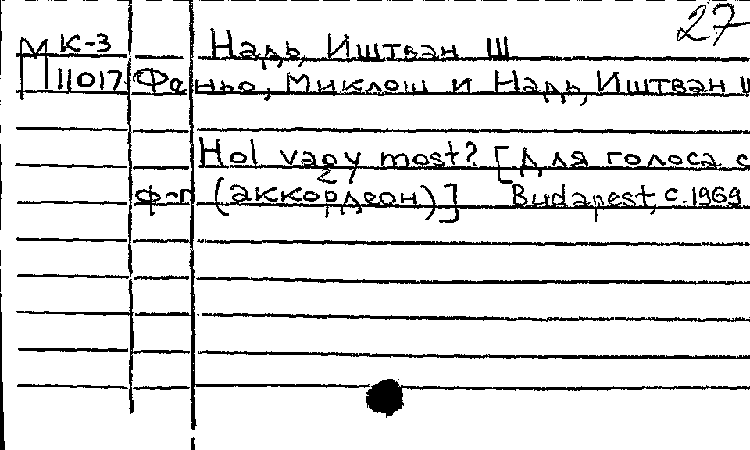 27
М К-3 Надь, Иштван III
П 11017 Феньо, Миклош и Надь, Иштван II
Hol vagy most? [Для голоса с
ф-п (аккордеон)] Budapest, c.1969